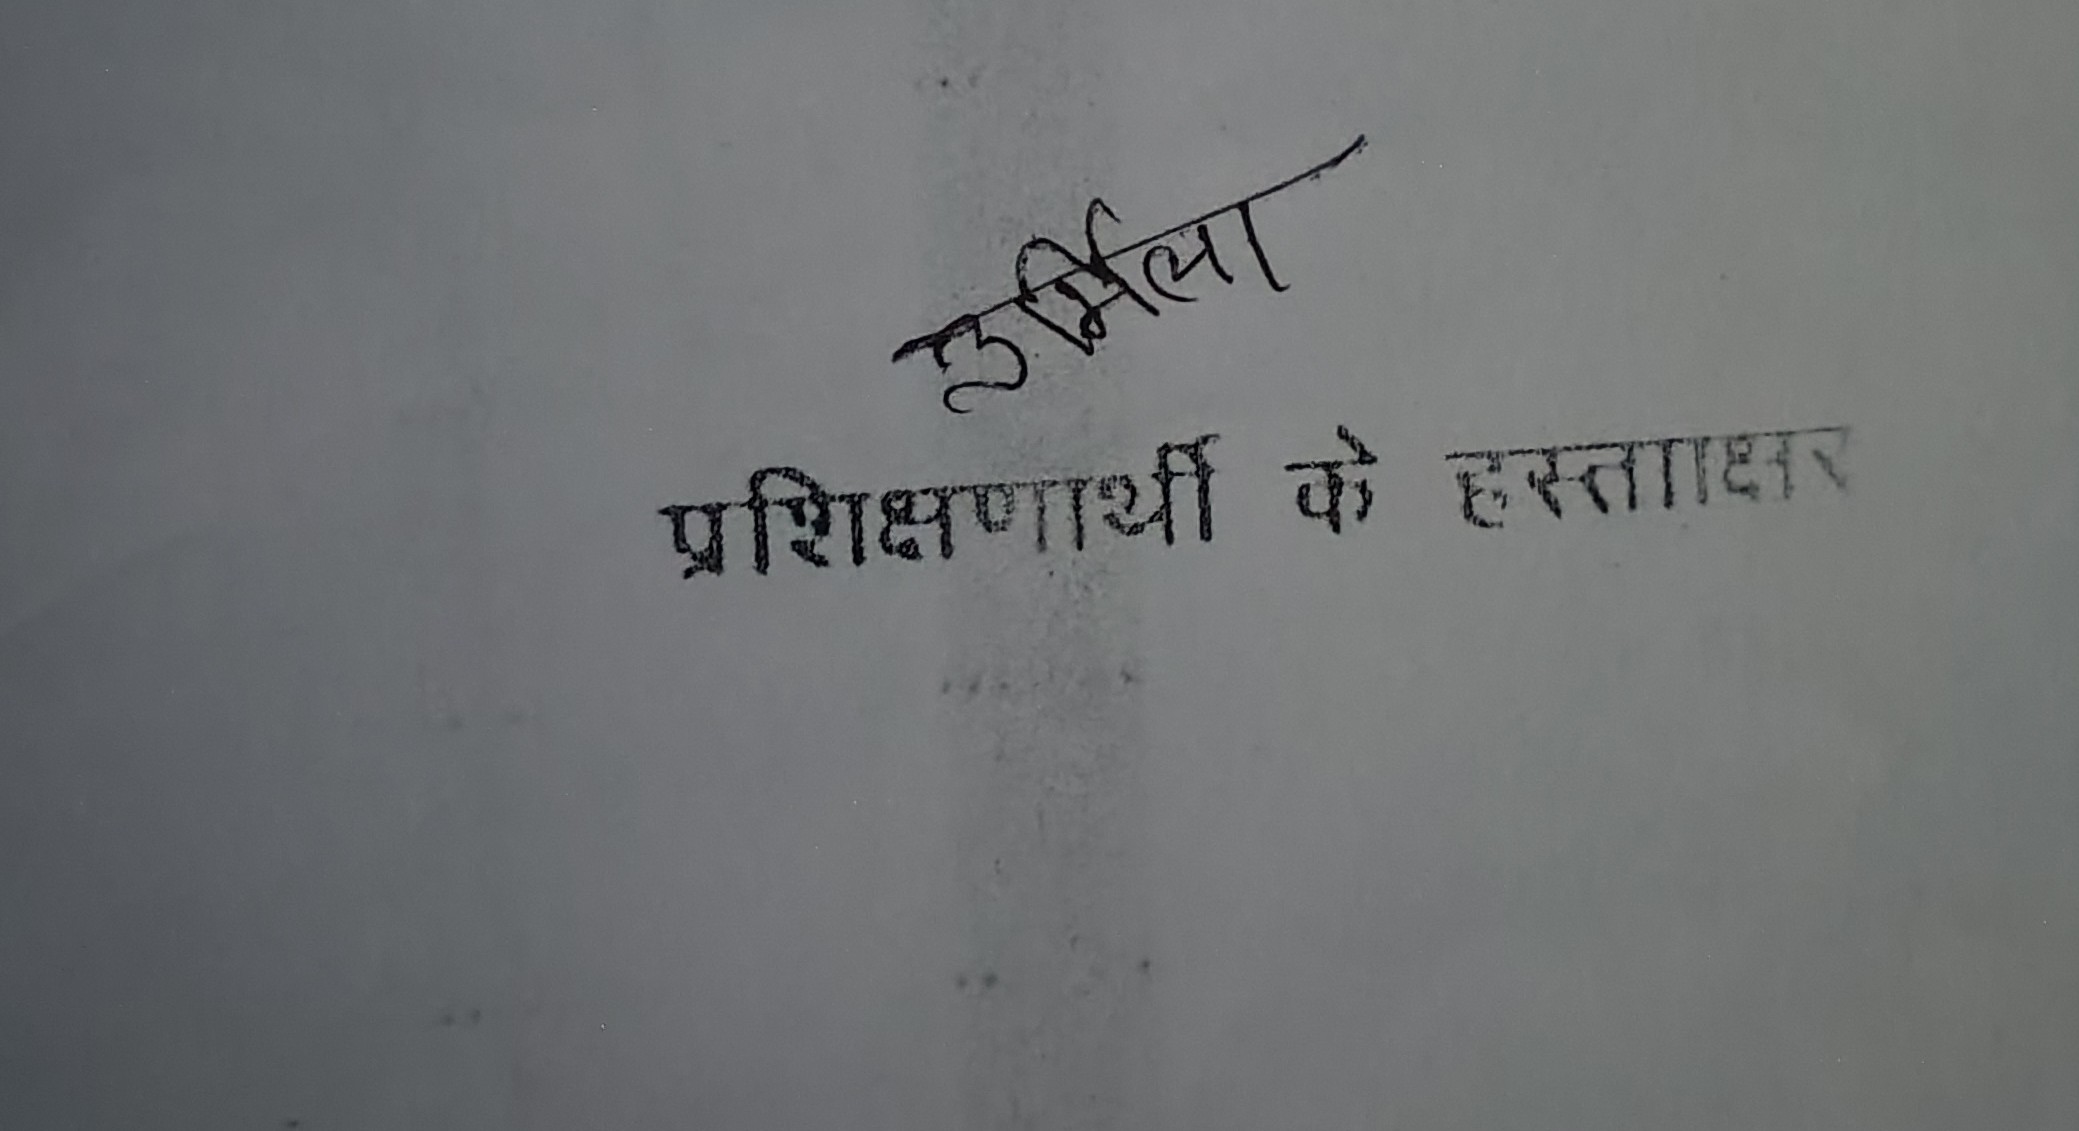 उर्मिला
प्रशिक्षणार्थी के हस्तााक्षर